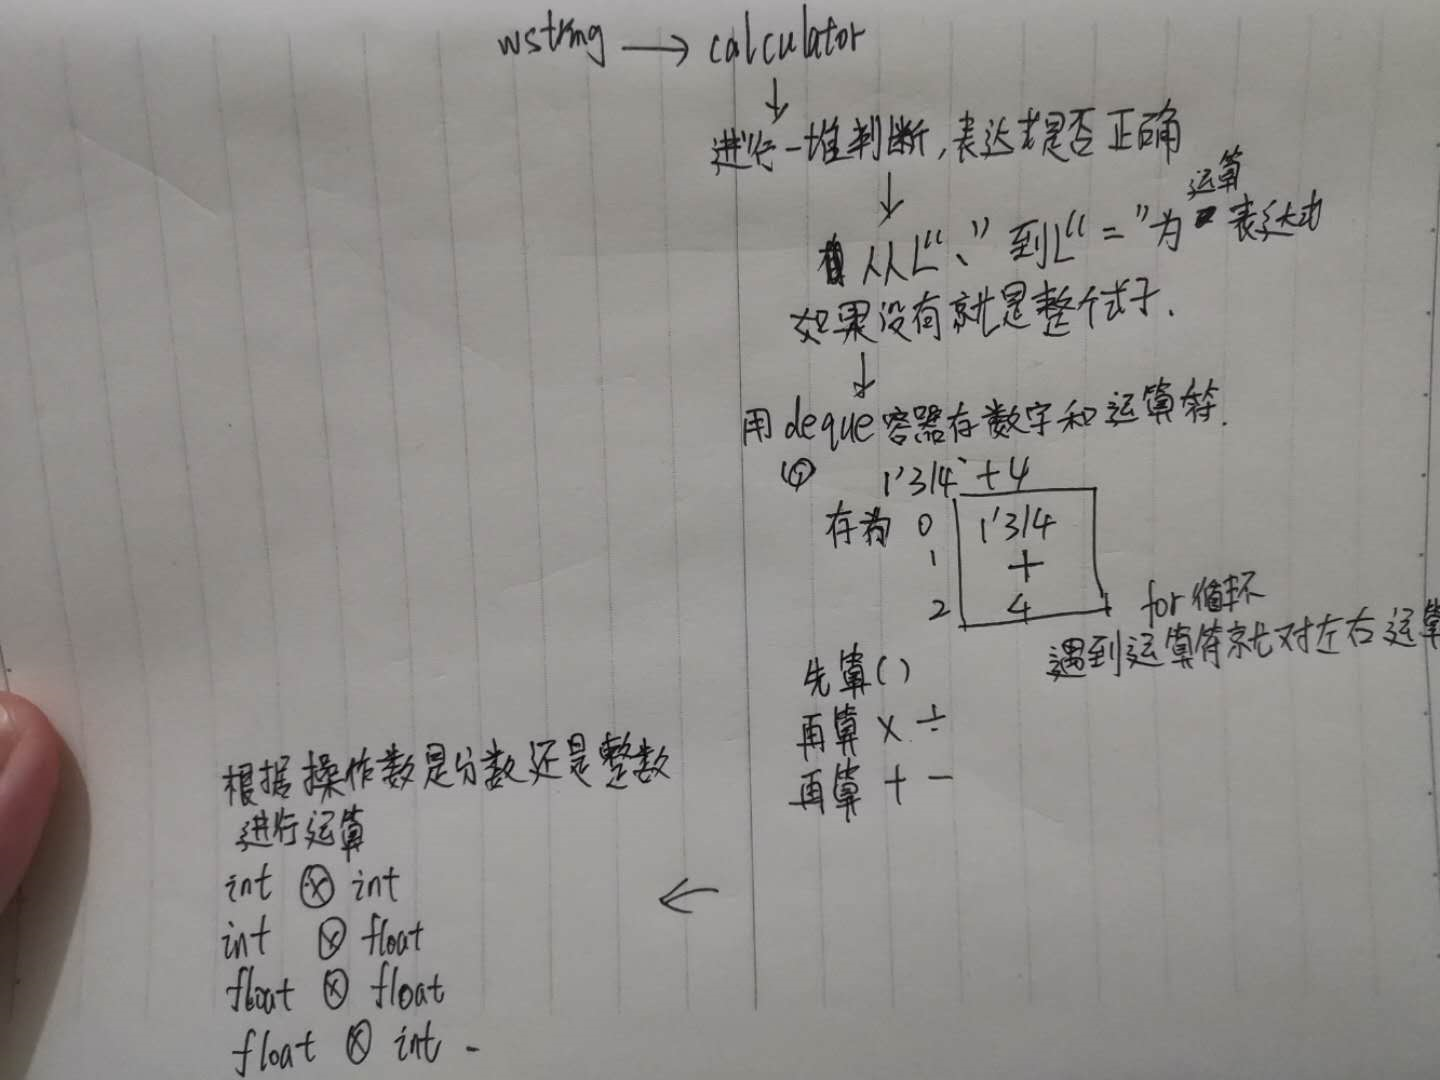 wstring → calculator
↓
进行一堆判断,表达式是否正确
↓
运算
从L“、”到L“=”为表达式
如果没有就是整个式子.
↓
用deque容器存数字和运算符.
1'3/4 + 4
存为 0 1'3/4
1 +
2 4
for循环
遇到运算符就对左右运算
先算()
再算 × ÷
再算 + -
←
根据操作数是分数还是整数
进行运算
int ⊗ int
int ⊗ float
float ⊗ float
float ⊗ int